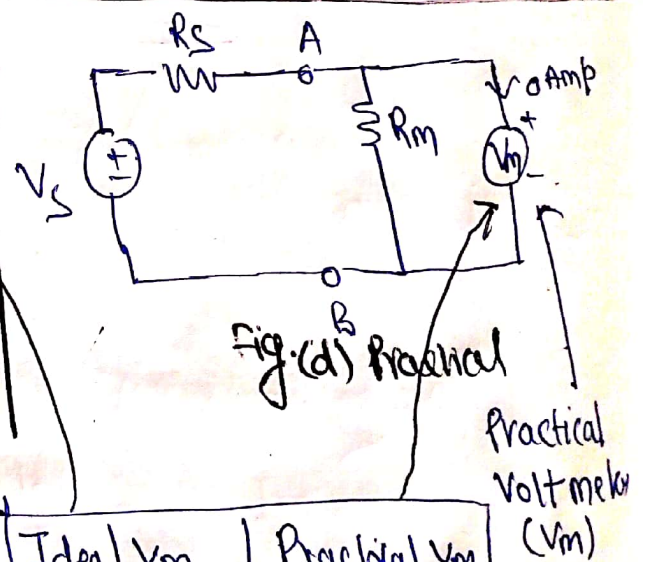 Rs
A
0 Amp
+
Rm
Vm
-
+
-
Vs
B
Fig.(d) Practical
Practical
Voltmeter
(Vm)
Ideal Vm
Practical Vm